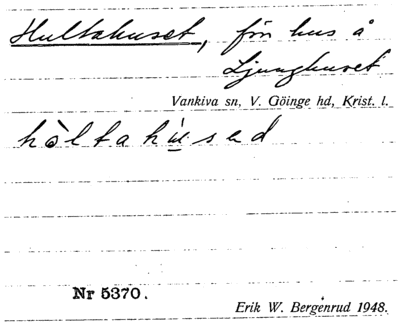 Hultahuset, fön hus å
Ljunghuset
Vankiva sn, V. Göinge hd, Krist. l.
hòltahúsed
Nr 5370.
Erik W. Bergenrud 1948.